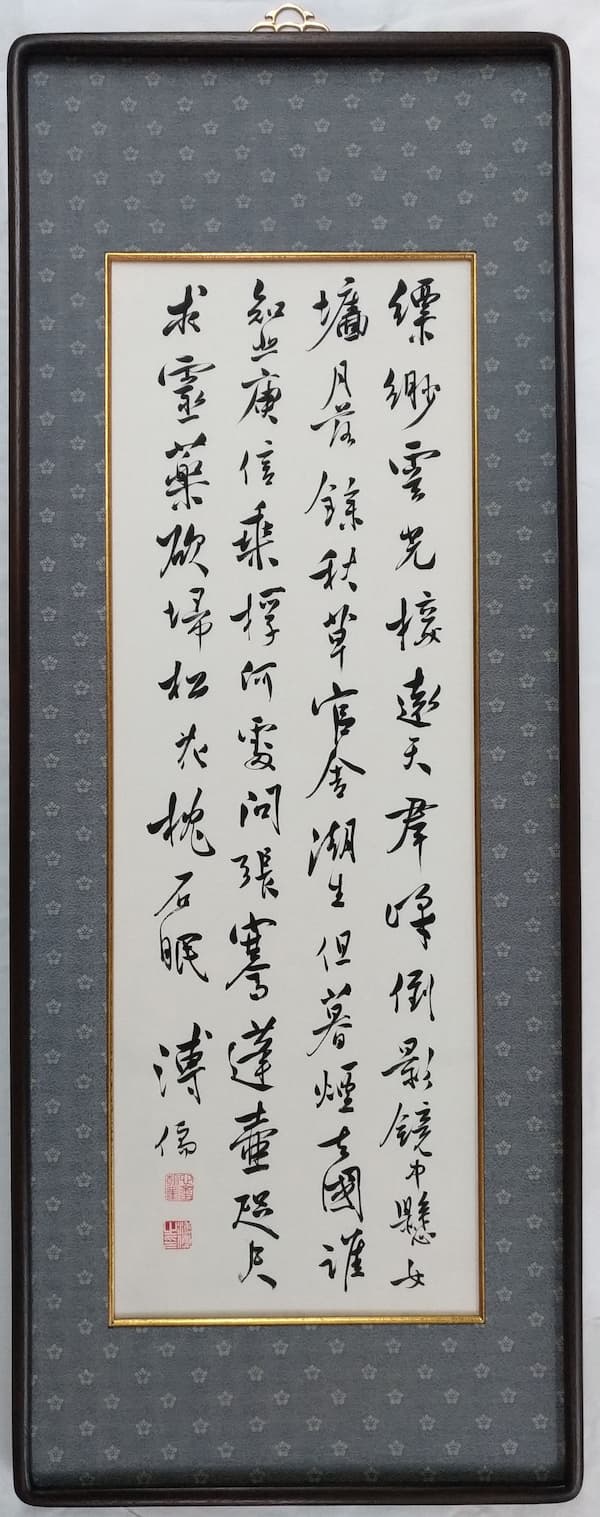 縹緲雲光接遠天羣峰倒影鏡中懸女
墻月落餘秋草官舍潮生但暮煙去國誰
知悲庾信乘桴何處問張騫蓬壺咫尺
求靈藥欲掃松花枕石眠 溥儒